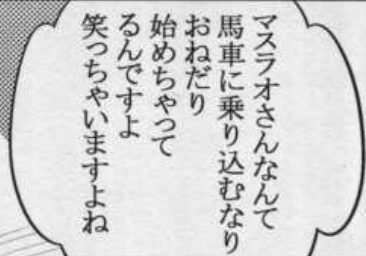 マスラオさんなんて
馬車に乗り込むなり
おねだり
始めちゃって
るんですよ
笑っちゃいますよね